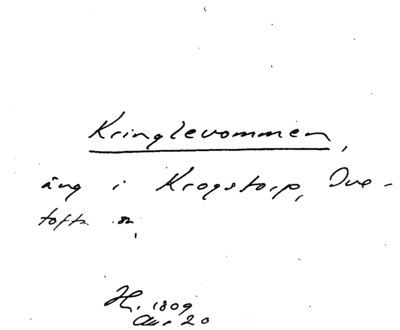 Kringlevommen,
äng i Krogstorp, Tve-
tofta sn.
H. 1809
Akt 20